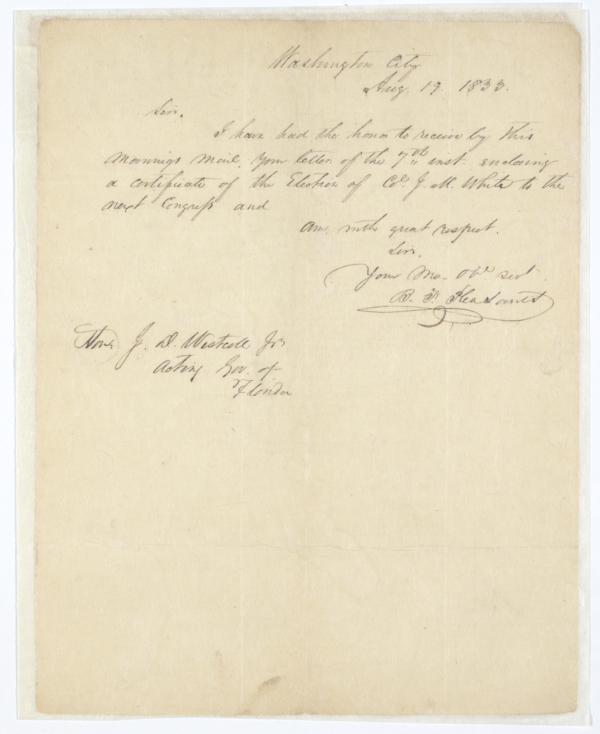 Washington City
Aug. 19. 1833.
Sir.
I have had the honor to receive by this
mornings mail, your letter of the 7th inst. enclosing
a certificate of the Election of Col. J. M. White to the
next Congress and
am, with great respect.
Sir,
Your Mo. Obt Sert
B. F. Pleasants
Hon. J. D. Westcott Jr
Acting Gov. of
Florida